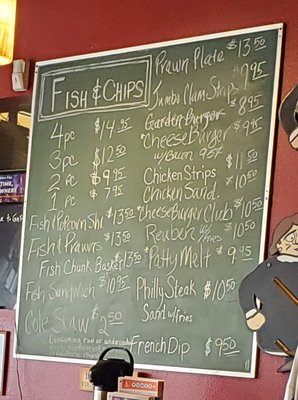 FISH & CHIPS
4 pc $14.95
3 pc $12.50
2 pc $9.95
1 pc $7.95
Fish & Popcorn Shr. $13.50
Fish & Prawns $13.50
Fish Chunk Basket $13.50
Fish Sandwich $10.95
Cole Slaw $2.50
Consuming raw or
Prawn Plate $13.50
Jumbo Clam Strips $9.95
Garden Burger $8.95
Cheese Burger $9.95
Chicken Strips $11.50
Chicken Sand. $10.50
Cheese Burger Club $10.50
Reuben w/fries $10.50
Patty Melt $9.95
Philly Steak $10.50
Sand w/fries
French Dip $9.50